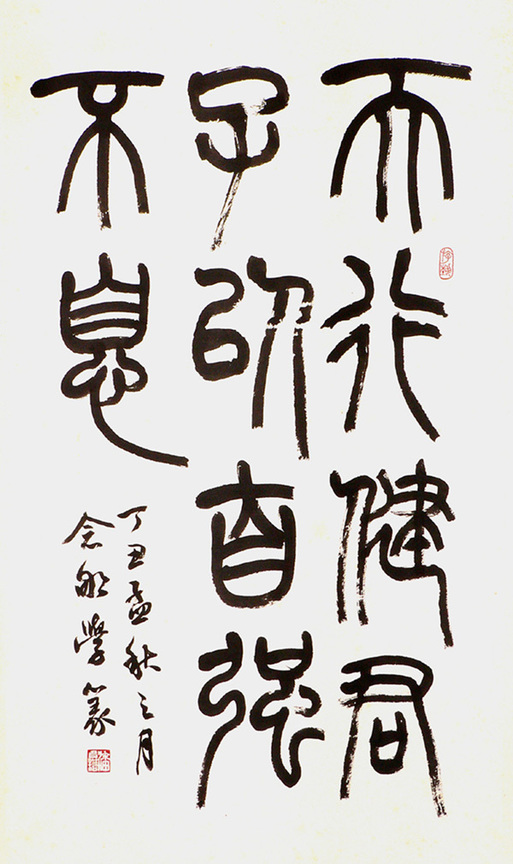 天行健君
子以自强
不息
丁丑孟秋之月
念船學篆